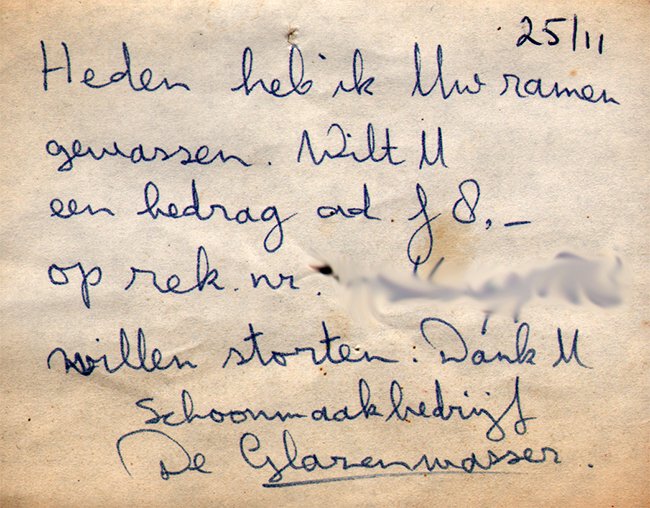 25/11
Heden heb ik Uw ramen
gewassen. Wilt U
een bedrag ad. f 8,–
op rek. nr.
willen storten. Dank U
Schoonmaakbedrijf
De Glazenwasser.